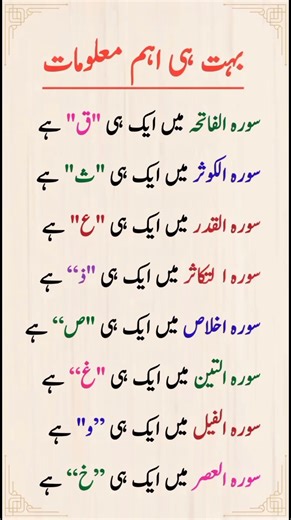 بہت ہی اہم معلومات
سورہ الفاتحہ میں ایک ہی "ق" ہے
سورہ الکوثر میں ایک ہی "ث" ہے
سورہ القدر میں ایک ہی "ع" ہے
سورہ ا لتکاثر میں ایک ہی "ذ“ ہے
سورہ اخلاص میں ایک ہی "ص“ ہے
سورہ التین میں ایک ہی "غ“ ہے
سورہ الفیل میں ایک ہی ”و" ہے
سورہ العصر میں ایک ہی ”خ“ ہے